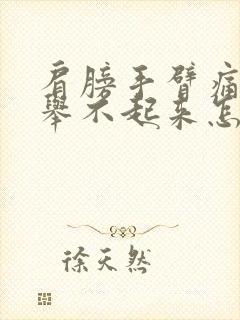 肩膀手臂痛
舉不起来怎
徐天然